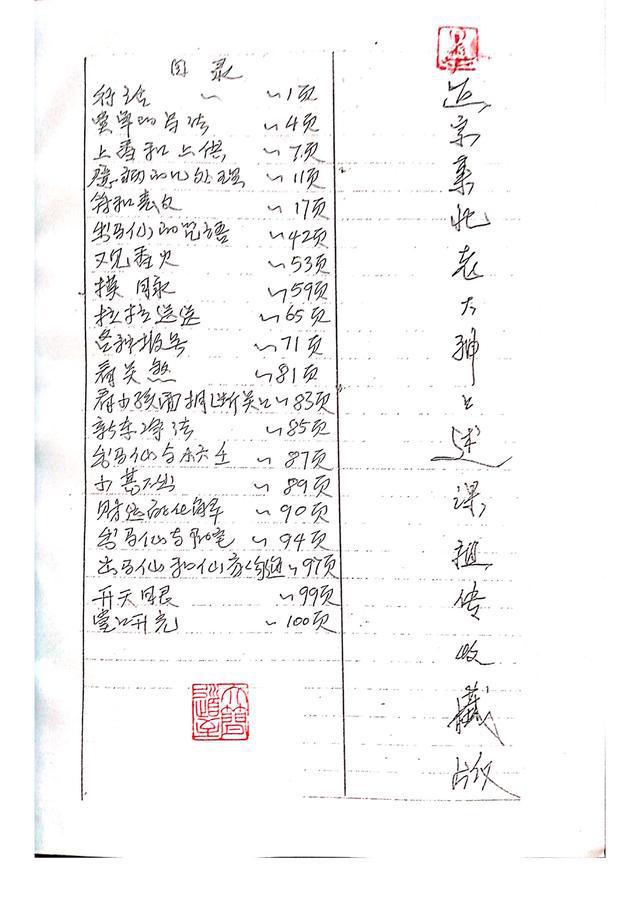 目录
行话 〜 〜1页
堂单的写法 〜4页
上香和上供 〜7页
癔病的几处理 〜11页
符和表文 〜17页
出马仙的咒语 〜42页
又见香火 〜53页
摸脉 〜59页
拉拉送送 〜65页
各种报号 〜71页
看关煞 〜81页
看小孩面相断关口 〜83页
新车净法 〜85页
出马仙与小六壬 〜87页
〜89页
财运的化解 〜90页
出马仙与阳宅 〜94页
出马仙和仙家沟通 〜97页
开天眼 〜99页
堂口研究 〜100页
大道至简
东北老大神上述课祖传收藏版